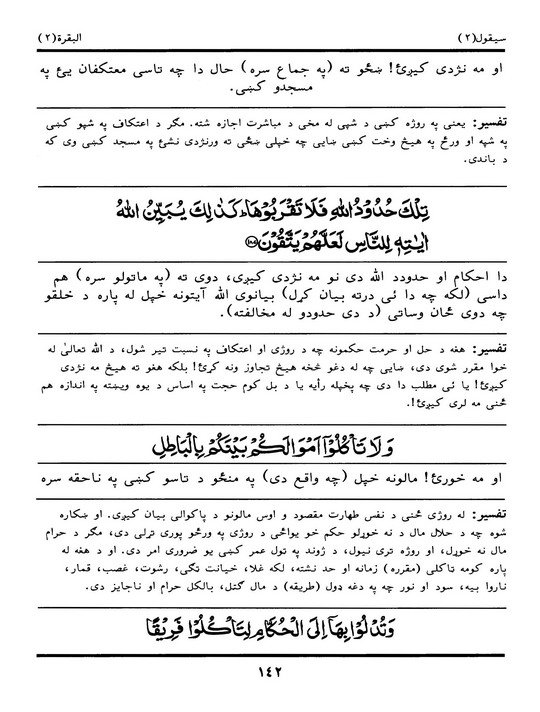 سيقول(٢) البقرة(٢)
او مه نژدی کيږئ! ښځو ته (په جماع سره) حال دا چه تاسی معتکفان يئ په
مسجدو کښی.
تفسير: يعنی په روژه کښی د شپی له مخی د مباشرت اجازه شته. مگر د اعتکاف په شپو کښی
په شپه او ورځ په هيڅ وخت کښی ښايی چه خپلی ښځی ته ورنژدی نشئ په مسجد کښی وی که
د باندی.
تِلْكَ حُدُوْدُ اللهِ فَلَا تَقْرَبُوْهَا ۗ كَذٰلِكَ يُبَيِّنُ اللهُ
اٰيٰتِهٖ لِلنَّاسِ لَعَلَّهُمْ يَتَّقُوْنَ ﴿۱۸۷﴾
دا احکام او حدودد الله دی نو مه نژدی کيږی، دوی ته (په ماتولو سره) هم
داسی (لکه چه دا ئی درته بيان کړل) بيانوی الله آيتونه خپل له پاره د خلقو
چه دوی ځان وساتی (د دی حدودو له مخالفته).
تفسير: هغه د حل او حرمت حکمونه چه د روژی او اعتکاف په نسبت تير شول، د الله تعالیٰ له
خوا مقرر شوی دی، ښايی چه له دغو څخه هيڅ تجاوز ونه کړئ! بلکه هغو ته هيڅ مه نژدی
کيږئ! يا ئی مطلب دا دی چه پخپله رأيه يا د بل کوم حجت په اساس د يوه ويښته په اندازه هم
ځنی مه لری کيږئ!.
وَلَا تَأْكُلُوْٓا اَمْوَالَكُمْ بَيْنَكُمْ بِالْبَاطِلِ
او مه خورئ! مالونه خپل (چه واقع دی) په منځو د تاسو کښی په ناحقه سره
تفسير: له روژی ځنی د نفس طهارت مقصود و اوس مالونو د پاکوالی بيان کيږی. او ښکاره
شوه چه د حلال مال د نه خوړلو حکم خو يوائی د روژی په ورځو پوری تړلی دی، مگر د حرام
مال نه خوړل، او روژه تری نيول، د ژوند په تول عمر کښی يو ضروری امر دی. او د هغه له
پاره کومه تاکلی (مقرره) زمانه او حد نشته، لکه غلا، خيانت تگی، رشوت، غصب، قمار،
ناروا بيه، سود او نور چه په دغه ډول (طريقه) د مال گتل، بالکل حرام او ناجايز دی.
وَتُدْلُوْا بِهَآ اِلَى الْحُكَّامِ لِتَأْكُلُوْا فَرِيْقًا
١٤٢